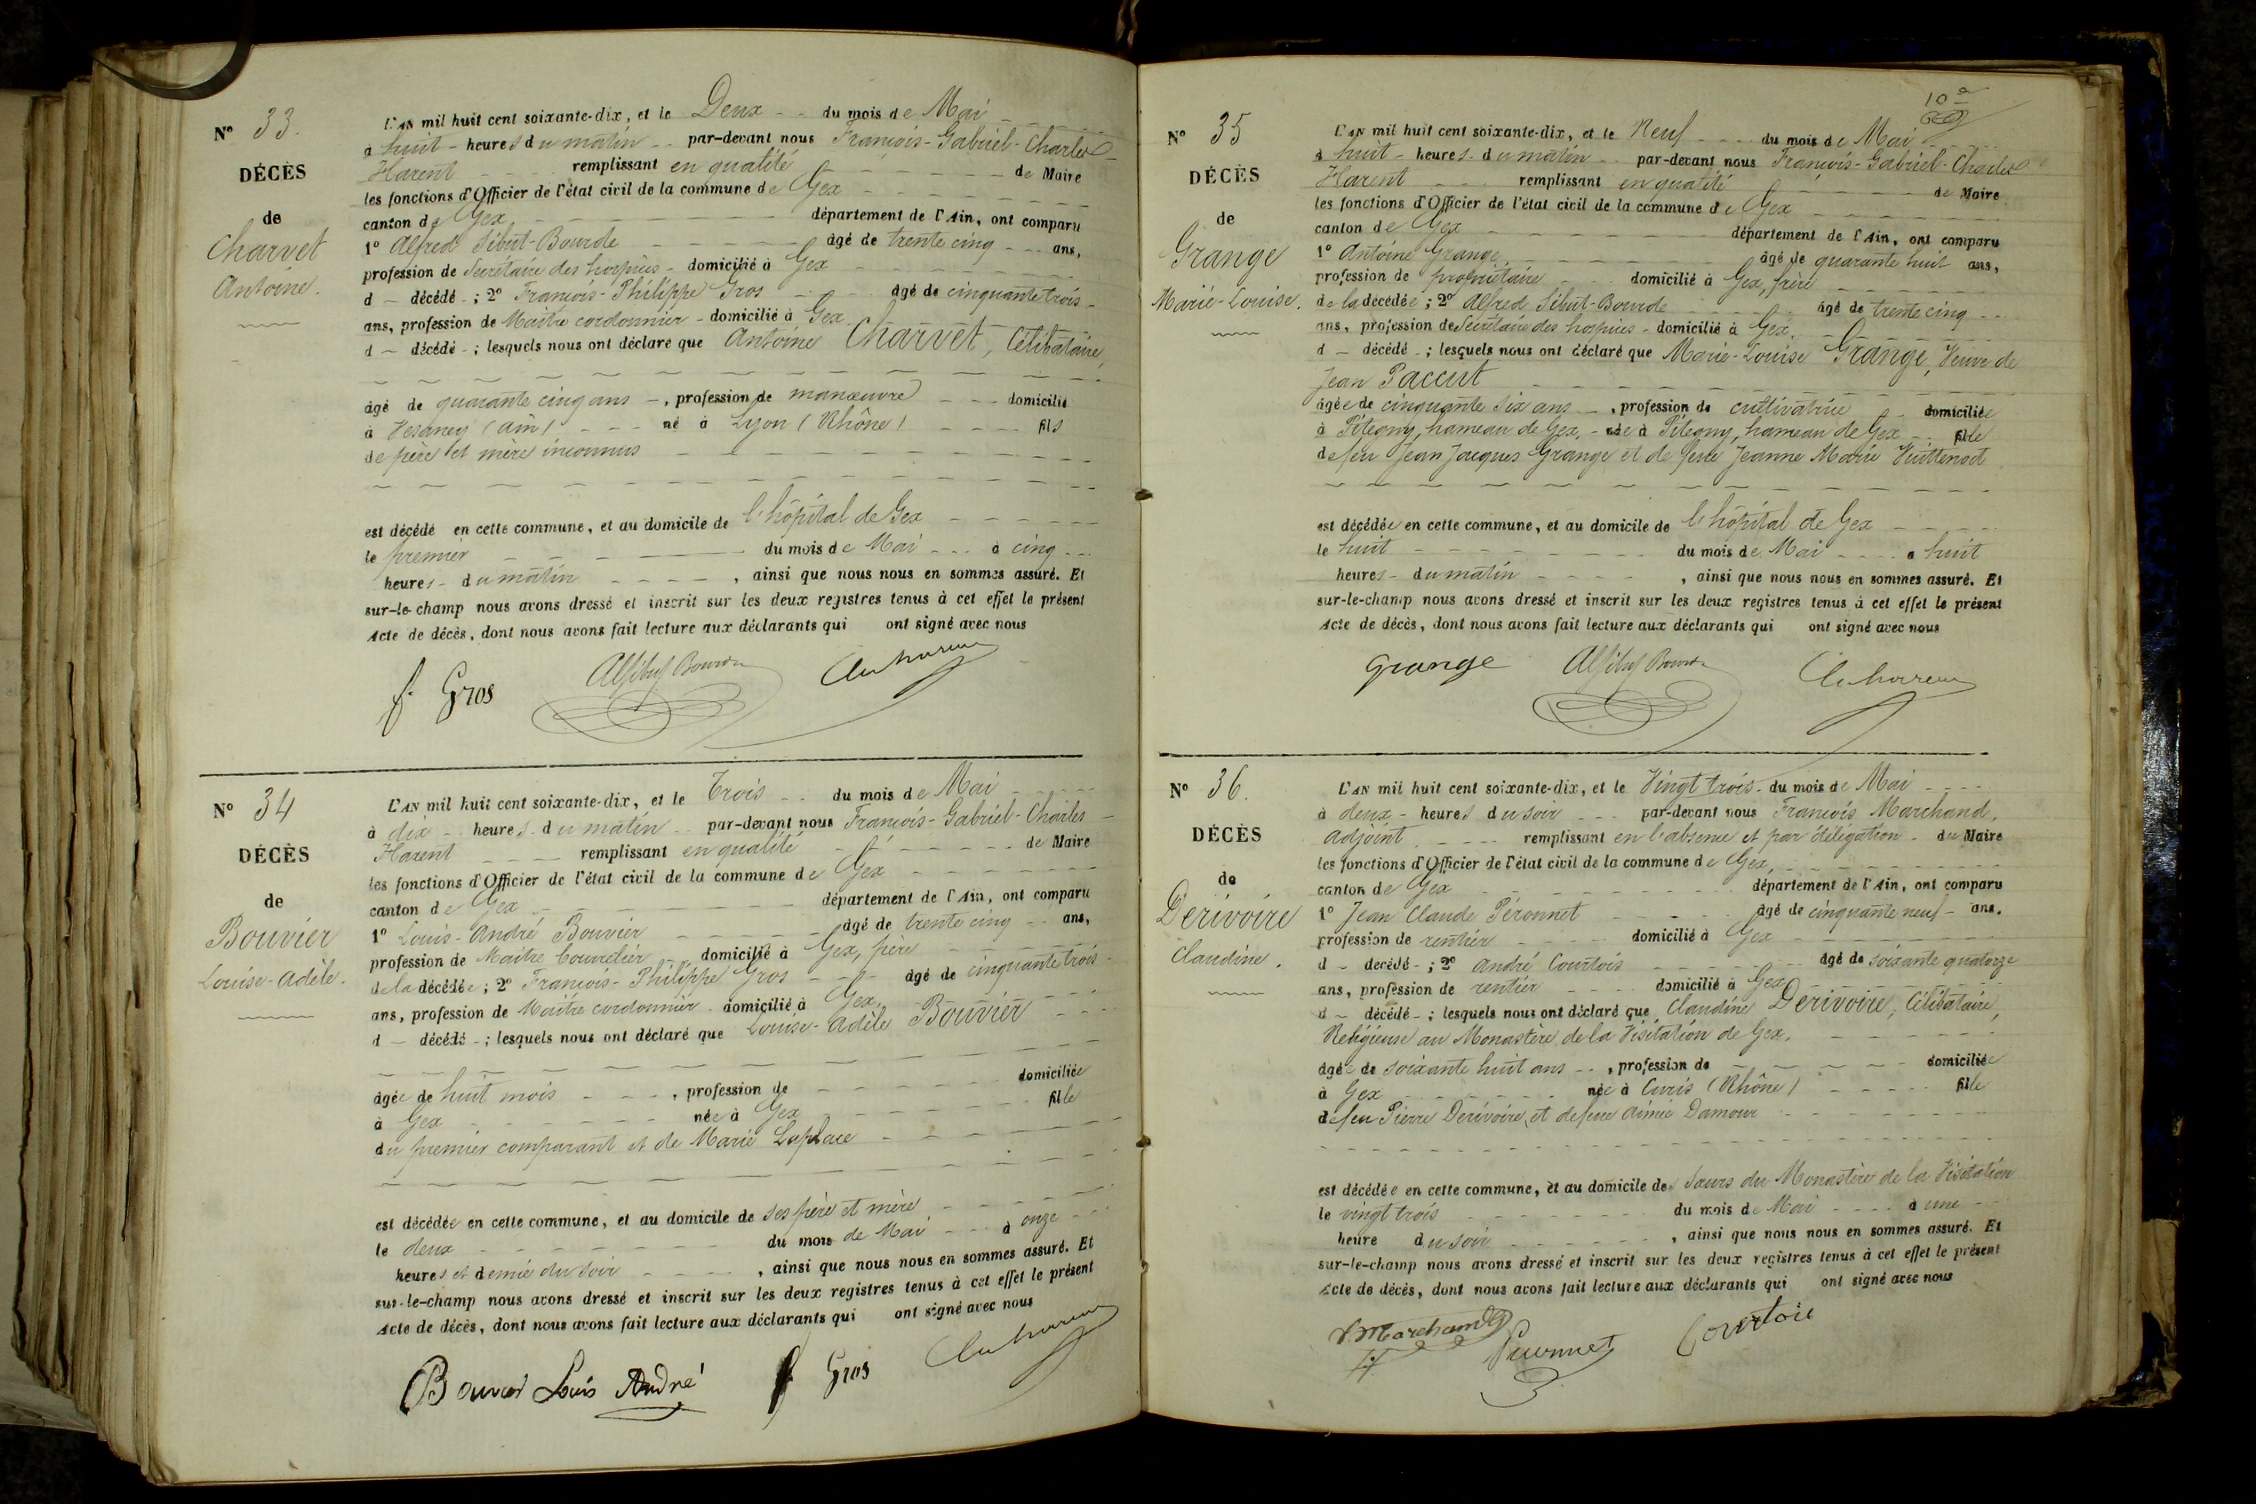 N° 33.
DÉCÈS
de
Charvet
Antoine.
L'AN mil huit cent soixante-dix, et le Deux du mois de Mai
à huit heures du matin par-devant nous François-Gabriel-Charles
Harent remplissant en qualité de Maire
les fonctions d'Officier de l'état civil de la commune de Gex
canton de Gex département de l'Ain, ont comparu
1° Alfred Sibut-Bourde âgé de trente cinq ans,
profession de Secrétaire des hospices domicilié à Gex
d décédé ; 2° François-Philippe Gros âgé de cinquante trois
ans, profession de Maître cordonnier domicilié à Gex
d décédé ; lesquels nous ont déclaré que Antoine Charvet, Célibataire,
âgé de quarante cinq ans , profession de manœuvre domicilié
à Vesancy (Ain) né à Lyon (Rhône) fils
de père et mère inconnus
est décédé en cette commune, et au domicile de l'hôpital de Gex
le premier du mois de Mai à cinq
heures du matin , ainsi que nous nous en sommes assuré. Et
sur-le-champ nous avons dressé et inscrit sur les deux registres tenus à cet effet le présent
Acte de décès, dont nous avons fait lecture aux déclarants qui ont signé avec nous
f. Gros
N° 34
DÉCÈS
de
Bouvier
Louise-Adèle.
L'AN mil huit cent soixante-dix, et le Trois du mois de Mai
à dix heures du matin par-devant nous François-Gabriel-Charles
Harent remplissant en qualité de Maire
les fonctions d'Officier de l'état civil de la commune de Gex
canton de Gex département de l'Ain, ont comparu
1° Louis-André Bouvier âgé de trente cinq ans,
profession de Maître bourrelier domicilié à Gex, père
de la décédée ; 2° François-Philippe Gros âgé de cinquante trois
ans, profession de Maître cordonnier domicilié à Gex,
d décédé ; lesquels nous ont déclaré que Louise-Adèle Bouvier
âgée de huit mois , profession de domiciliée
à Gex née à Gex fille
du premier comparant et de Marie Laplace
est décédée en cette commune, et au domicile de ses père et mère
le deux du mois de Mai à onze
heures et demie du soir , ainsi que nous nous en sommes assuré. Et
sur-le-champ nous avons dressé et inscrit sur les deux registres tenus à cet effet le présent
Acte de décès, dont nous avons fait lecture aux déclarants qui ont signé avec nous
Bouvier Louis André f Gros
10
N° 35
DÉCÈS
de
Grange
Marie-Louise.
L'AN mil huit cent soixante-dix, et le Neuf du mois de Mai
à huit heures du matin par-devant nous François-Gabriel-Charles
Harent remplissant en qualité de Maire
les fonctions d'Officier de l'état civil de la commune de Gex
canton de Gex département de l'Ain, ont comparu
1° Antoine Grange, âgé de quarante huit ans,
profession de propriétaire domicilié à Gex, frère
de la décédée ; 2° Alfred Sibut-Bourde âgé de trente cinq
ans, profession de Secrétaire des hospices domicilié à Gex,
d décédé ; lesquels nous ont déclaré que Marie-Louise Grange, Veuve de
Jean Paccut
âgée de cinquante six ans , profession de cultivatrice domiciliée
à Pitegny, hameau de Gex, née à Pitegny, hameau de Gex fille
de feu Jean Jacques Grange et de feue Jeanne Marie
est décédée en cette commune, et au domicile de l'hôpital de Gex
le huit du mois de Mai à huit
heures du matin , ainsi que nous nous en sommes assuré. Et
sur-le-champ nous avons dressé et inscrit sur les deux registres tenus à cet effet le présent
Acte de décès, dont nous avons fait lecture aux déclarants qui ont signé avec nous
Grange
N° 36.
DÉCÈS
de
Derivoire
Claudine.
L'AN mil huit cent soixante-dix, et le Vingt trois du mois de Mai
à deux heures du soir par-devant nous François Marchand,
adjoint remplissant en l'absence et par délégation du Maire
les fonctions d'Officier de l'état civil de la commune de Gex,
canton de Gex département de l'Ain, ont comparu
1° Jean Claude Péronnet âgé de cinquante neuf ans,
profession de rentier domicilié à Gex
d décédé ; 2° André Courtois âgé de soixante quatorze
ans, profession de rentier domicilié à Gex
d décédé ; lesquels nous ont déclaré que Claudine Derivoire, Célibataire,
Religieuse au Monastère de la Visitation de Gex,
âgée de soixante huit ans , profession de domiciliée
à Gex née à Curis (Rhône) fille
de feu Pierre Derivoire, et de feue Aimée Damour
est décédée en cette commune, et au domicile des Sœurs du Monastère de la Visitation
le vingt trois du mois de Mai à une
heure du soir , ainsi que nous nous en sommes assuré. Et
sur-le-champ nous avons dressé et inscrit sur les deux registres tenus à cet effet le présent
Acte de décès, dont nous avons fait lecture aux déclarants qui ont signé avec nous
Marchand Péronnet Courtois